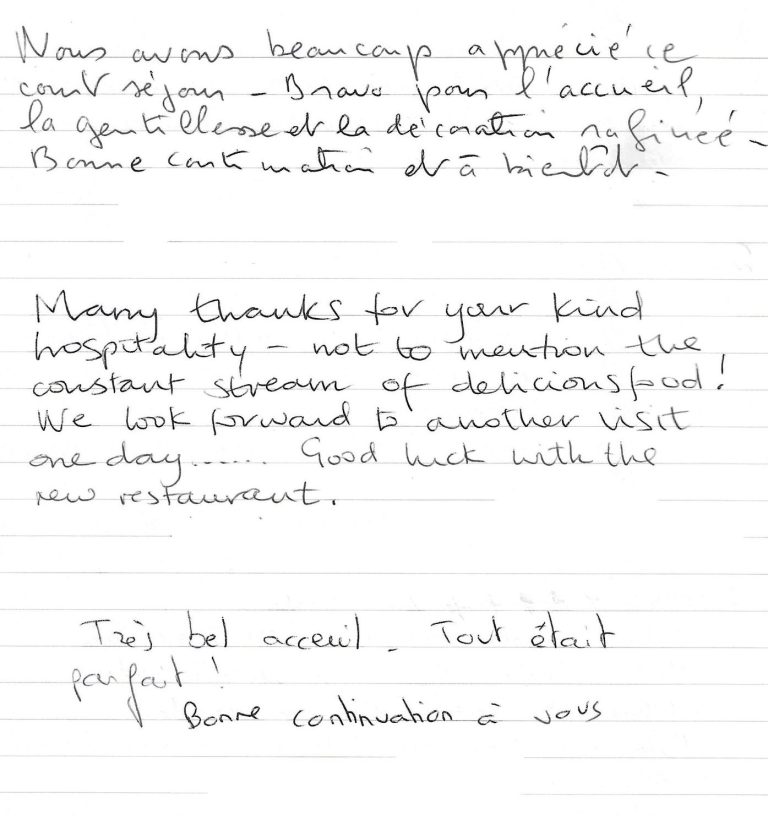 Nous avons beaucoup apprécié ce
court séjour - Bravo pour l'accueil,
la gentillesse et la décoration rafinéé -
Bonne continuation et à bientôt -
Many thanks for your kind
hospitality - not to mention the
constant stream of delicious food!
We look forward to another visit
one day....... Good luck with the
new restaurant.
Très bel acceuil - Tout était
parfait !
Bonne continuation à vous